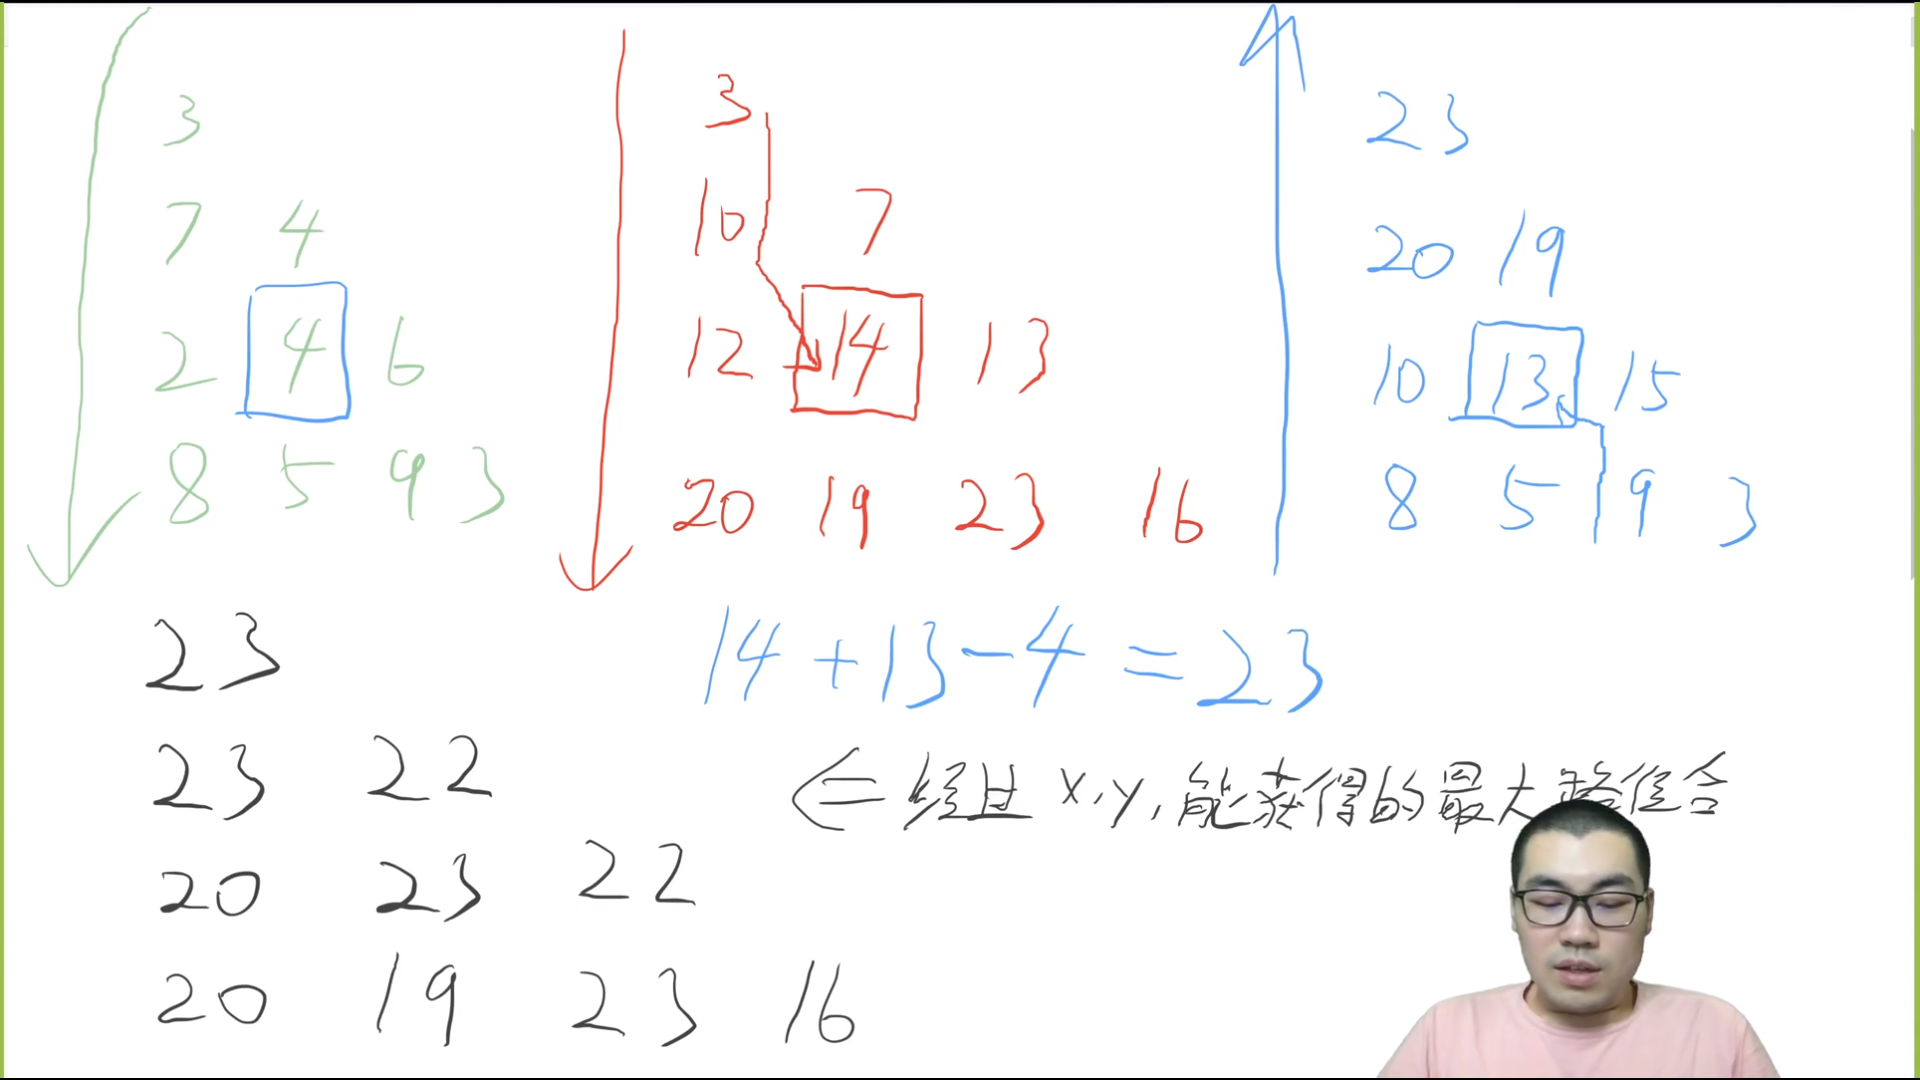 3
7 4
2 4 6
8 5 9 3
3
10 7
12 14 13
20 19 23 16
23
20 19
10 13 15
8 5 9 3
14+13-4=23
23
23 22
20 23 22
20 19 23 16
⇐ 经过 x,y,能获得的最大路径合